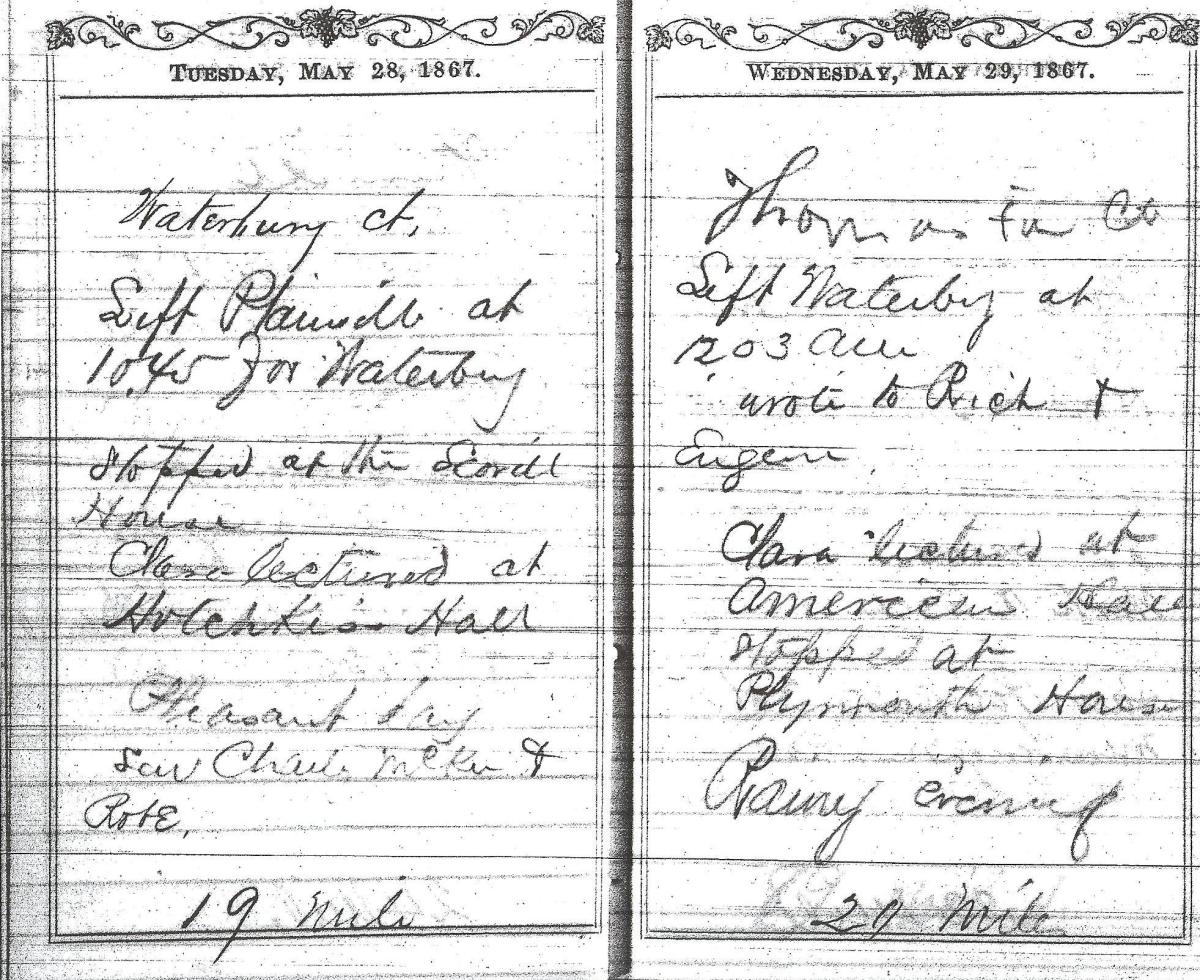 TUESDAY, MAY 28, 1867.
Waterbury ct,
Left Plainvill at
10.45 for Waterbury
Stopped at the Scovill
House
Clara lectured at
Hotchkiss Hall
Pleasant day
Saw Charli &
Robt,
19 mile
WEDNESDAY, MAY 29, 1867.
Thomaston Ct
Left Waterbury at
1203 am
wrote to Rich &
Eugene
Clara lectured at
American Hall
Stopped at
Plymouth House
Rainy evening
mile